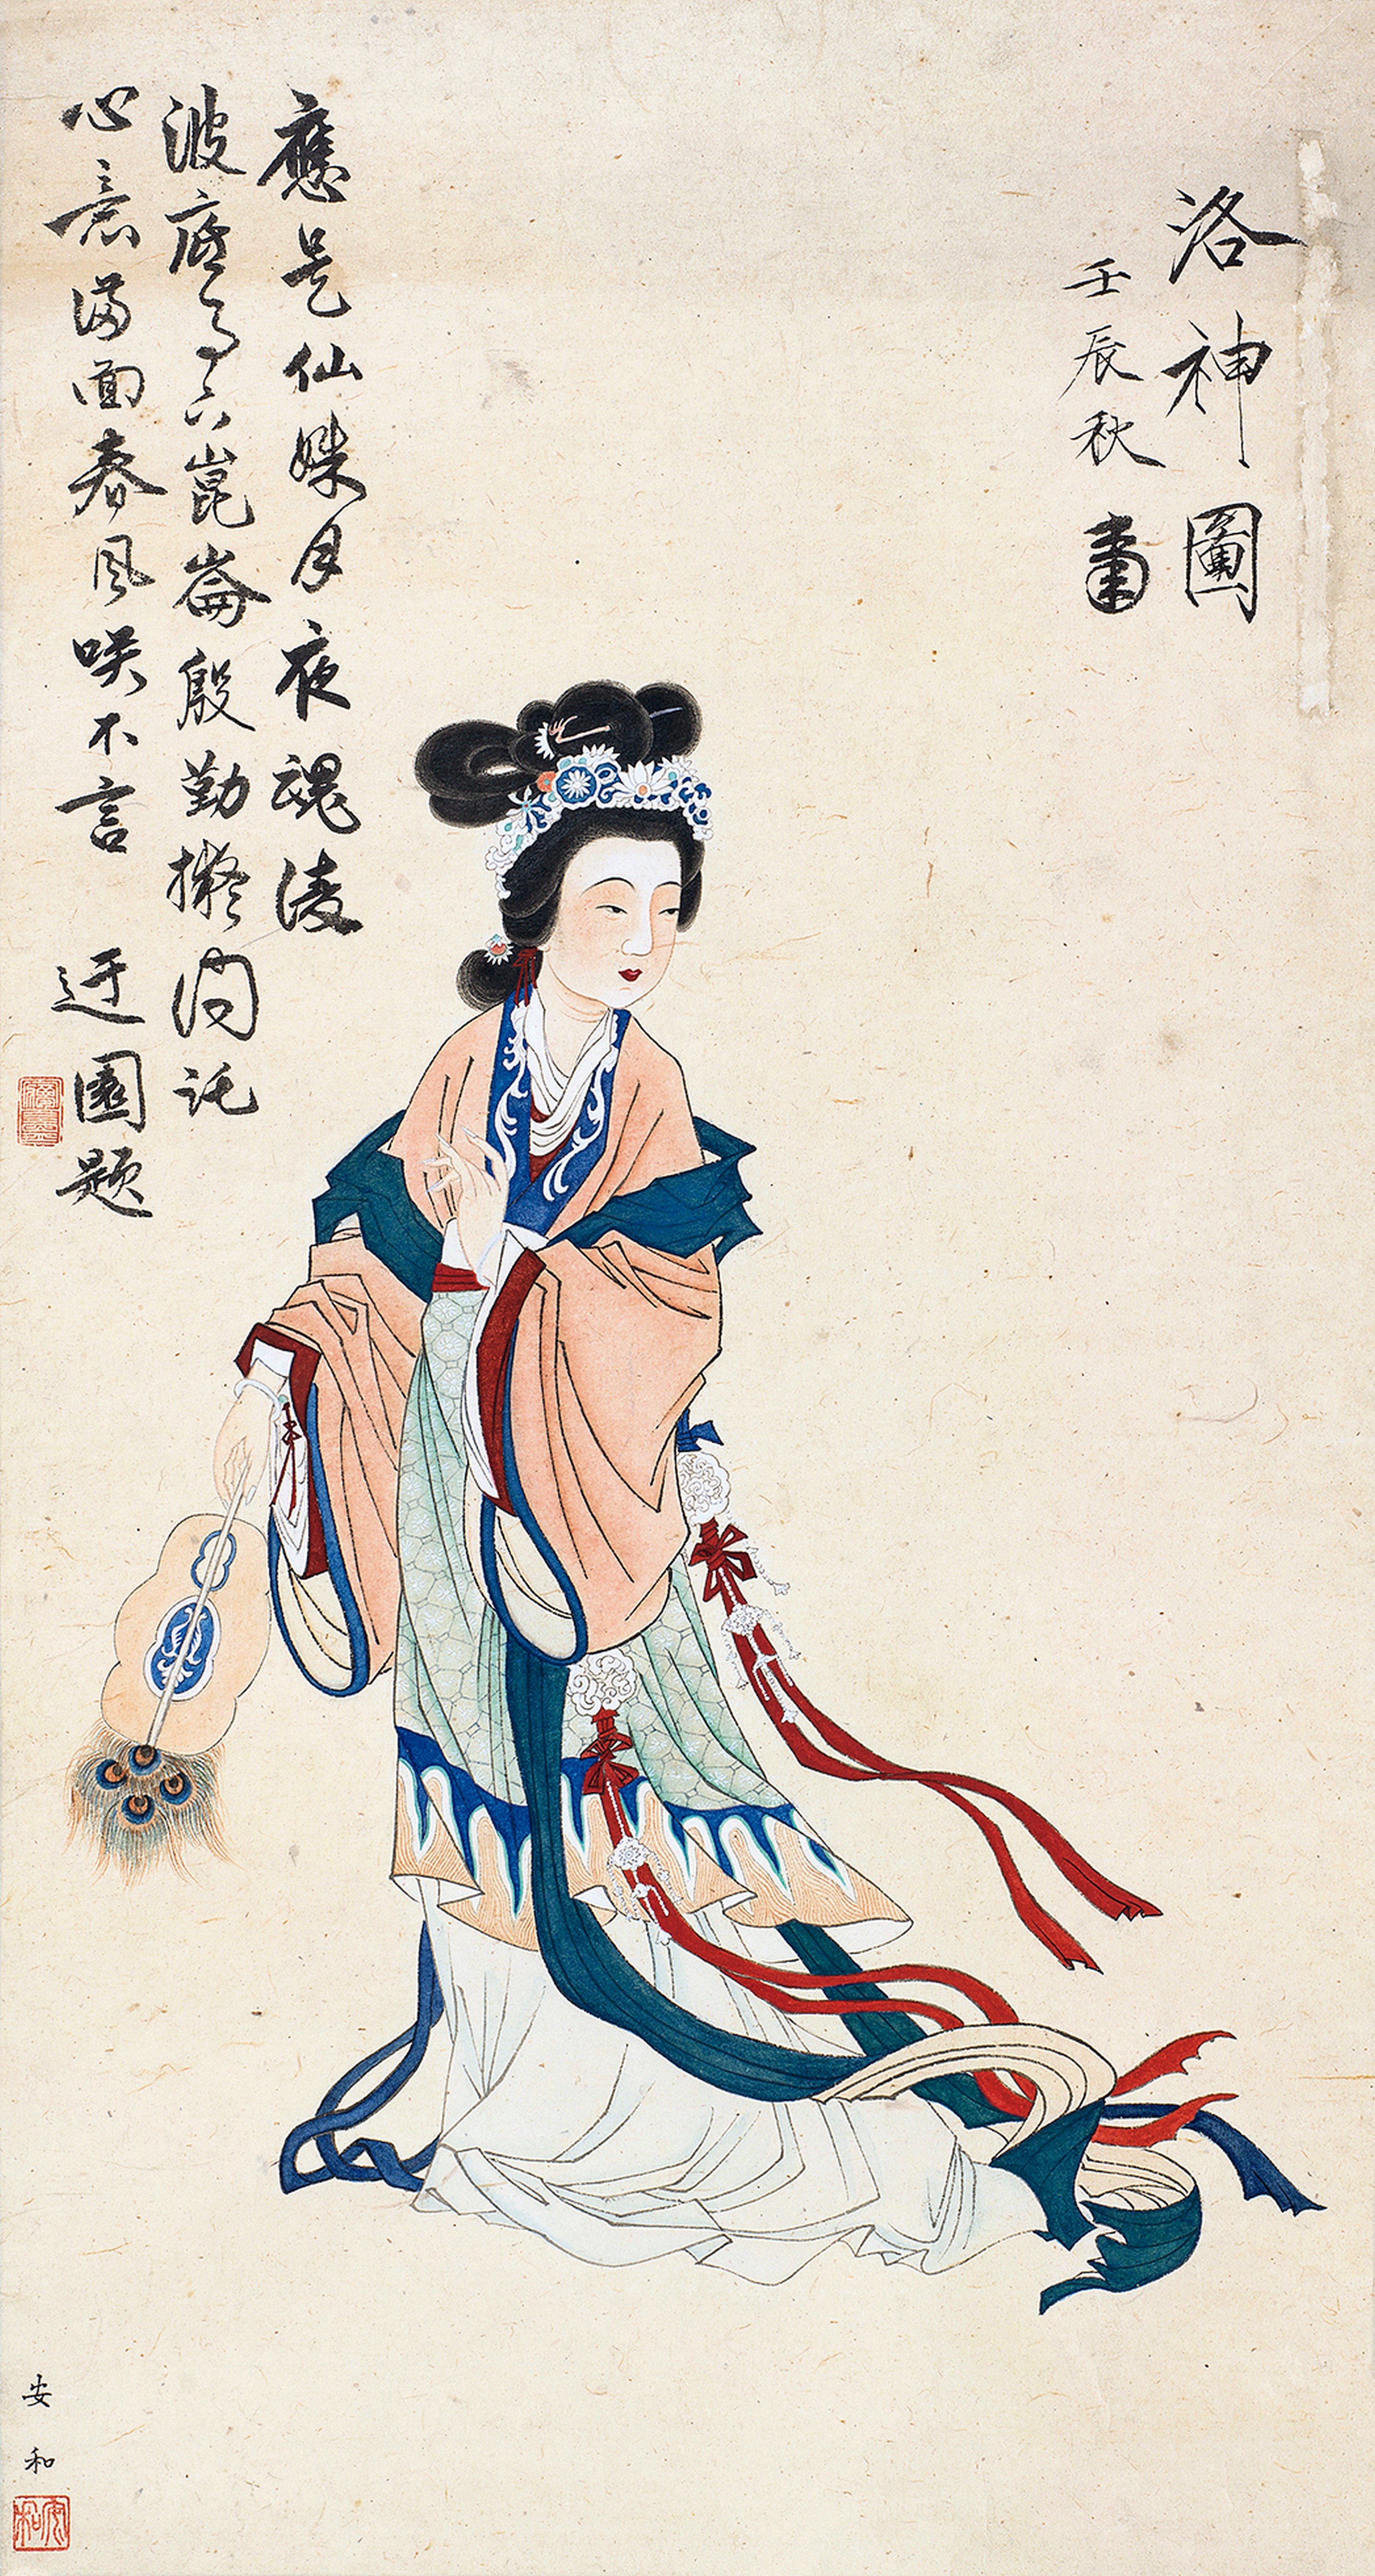 洛神圖
壬辰秋畫
應是仙姝月夜魂淩
波底事下崑崙殷勤擬問託
心意滿面春風咲不言 迂園題
安和
安和